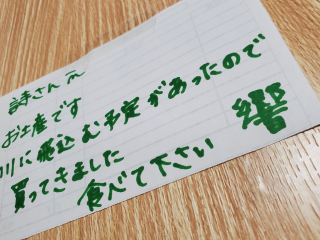 詩さん え
お土産です
川に飛込む予定があったので
買ってきました
食べて下さい
響